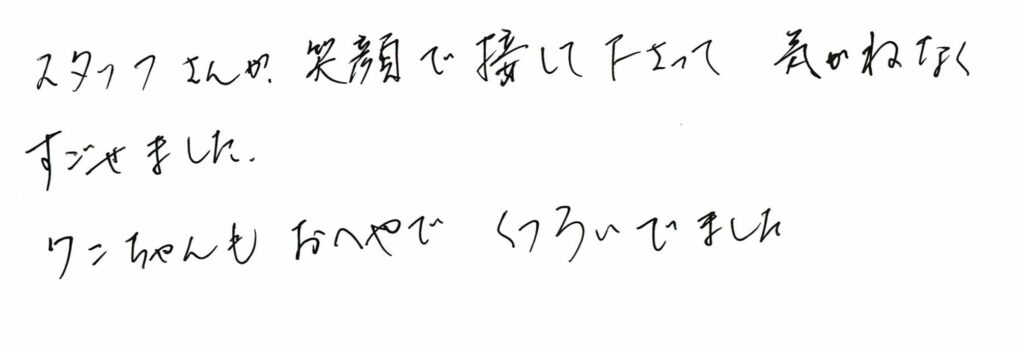 スタッフさんが、笑顔で接して下さって 気がねなく
すごせました。
ワンちゃんも おへやで くつろいでました